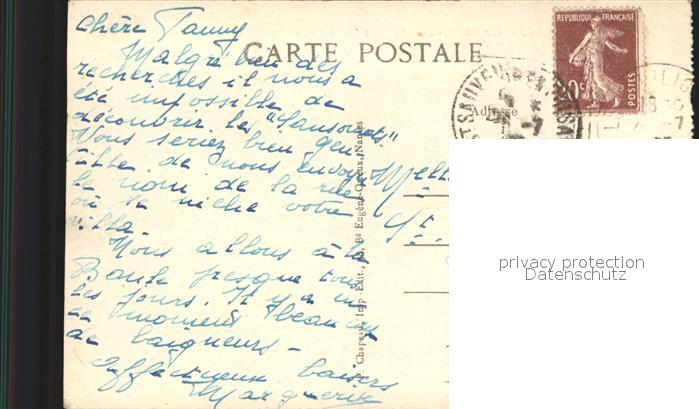 Chère Fanny
Malgré bien des
recherches il nous a
été impossible de
découvrir les "Sansonnets".
Vous seriez bien gen-
tille de nous envoyer
le nom de la rue
où se niche votre
villa.
Nous allons à la
Baule presque tous
les jours. Il y a en
ce moment beaucoup
de baigneurs -
Affectueux baisers
Marguerite
CARTE POSTALE
Adresse
REPUBLIQUE FRANÇAISE
20c
POSTES
Melle
St.
Chapeau, Imp. Edit., Bd Eugène-Orieux, Nantes
privacy protection
Datenschutz